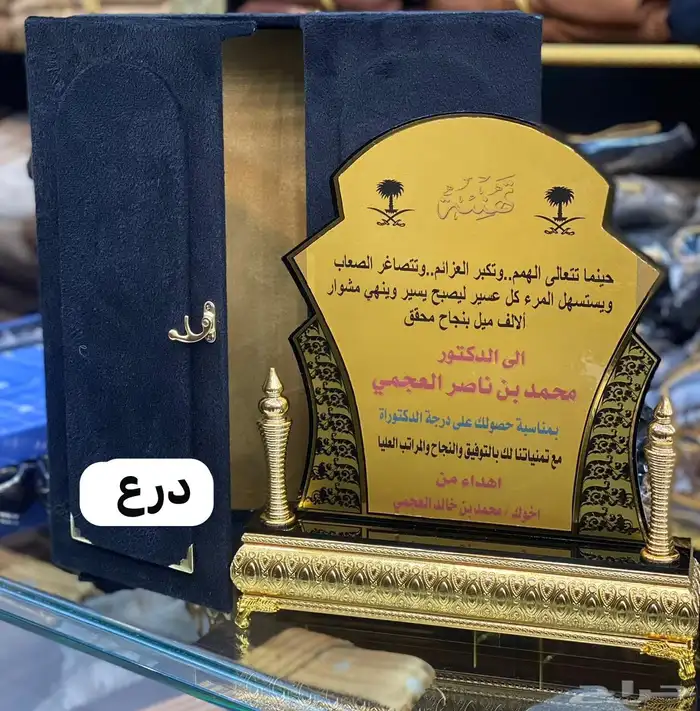 تهنئة
حينما تتعالى الهمم..وتكبر العزائم..وتتصاغر الصعاب
ويستسهل المرء كل عسير ليصبح يسير وينهي مشوار
ألالف ميل بنجاح محقق
الى الدكتور
محمد بن ناصر العجمي
بمناسبة حصولك على درجة الدكتوراة
مع تمنياتنا لك بالتوفيق والنجاح والمراتب العليا
اهداء من
اخوك / محمد بن خالد العجمي
درع
حراج